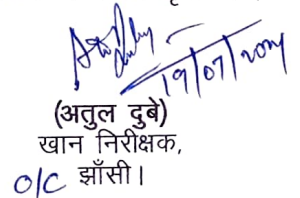 19/07/2024
(अतुल दुबे)
खान निरीक्षक,
O/C झाँसी।